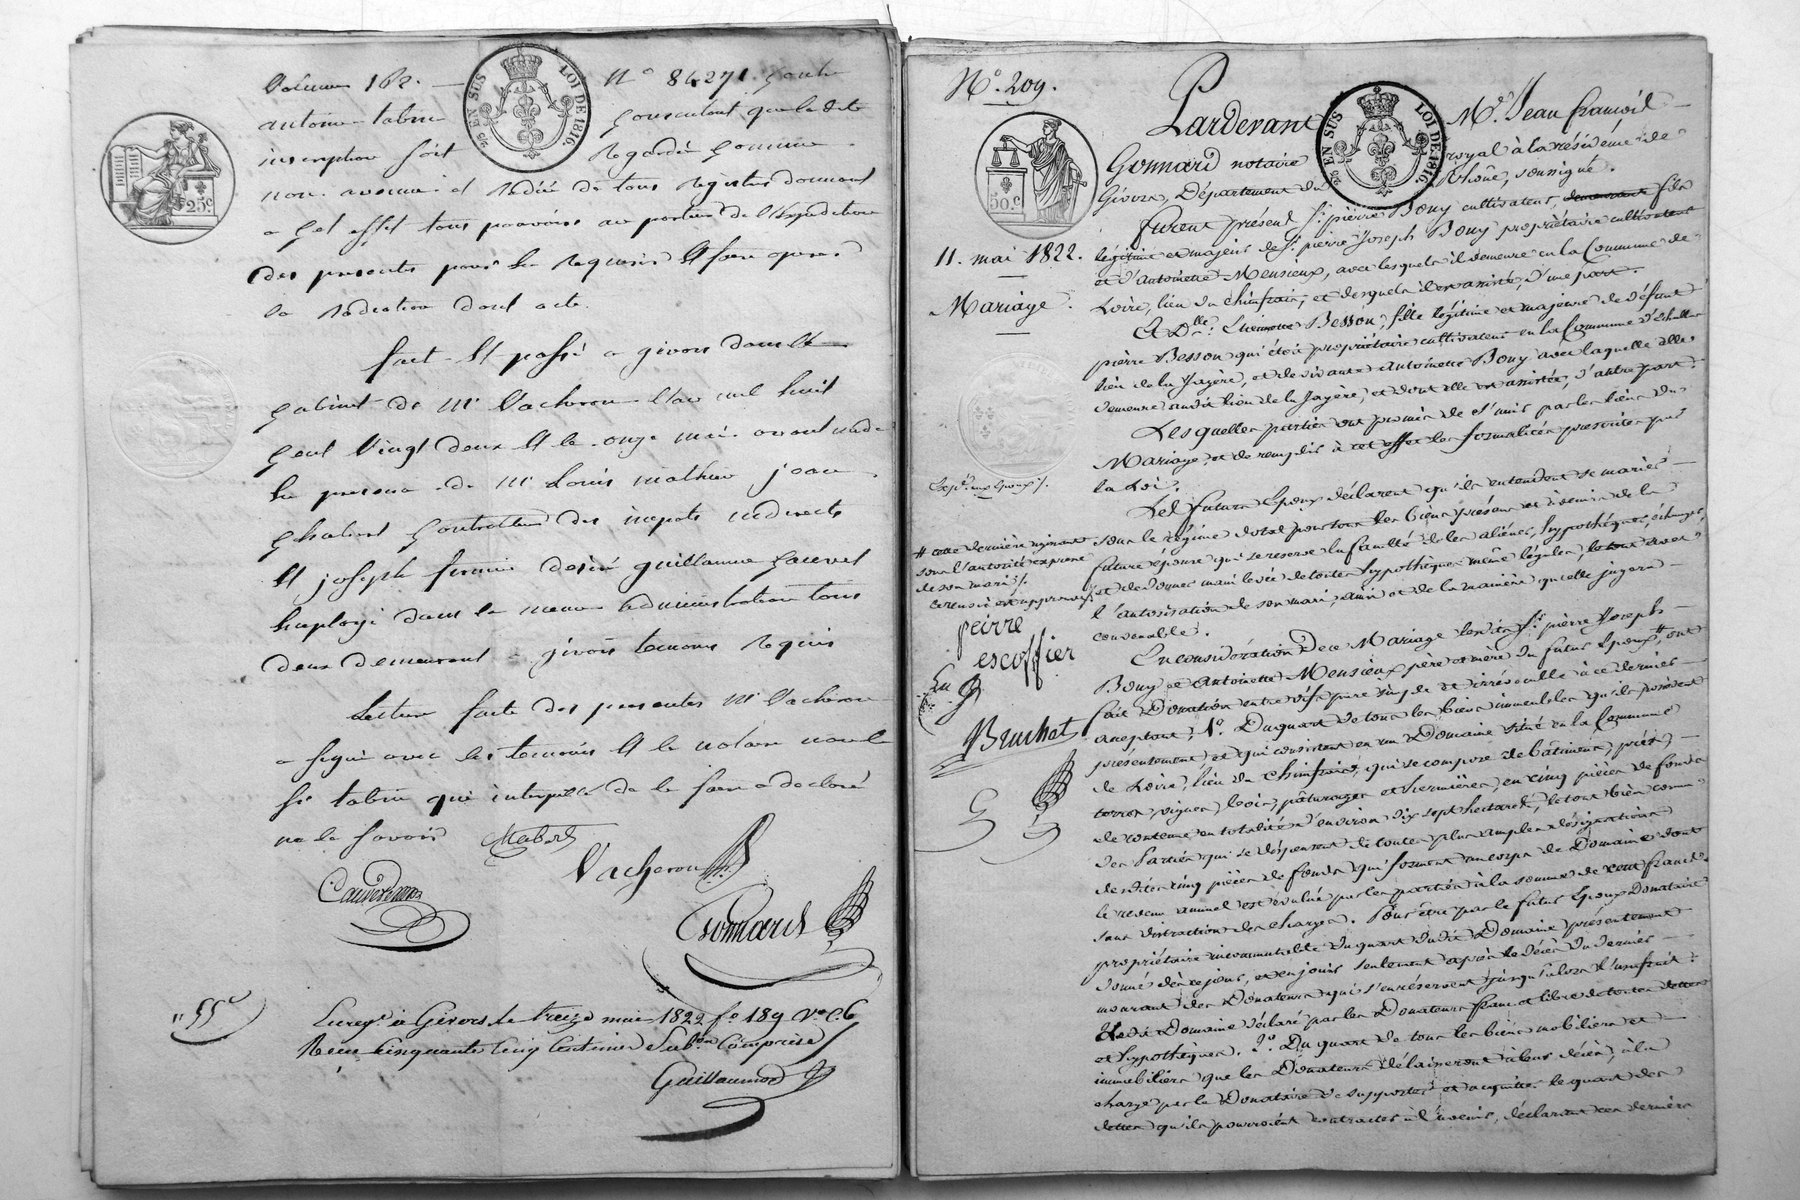 Volume 162. N° 84271 contre
antoine tabin consentant que la dite
inscription soit regardée comme
non avenue et radiée de tous registres donnant
a cet effet tous pouvoirs au porteur de l'expédition
des presentes pour en requerir et faire operer
la radiation dont acte
fait et passé a givors dans le
cabinet de Mr Vacheron l'an mil huit
cent vingt deux et le onze mai avant midi
En presence de Mr Louis mathieu jean
chabert controlleur des impots indirects
et joseph firmin desiré guillaume
Employé dans la meme administration tous
deux demeurant a givors temoins requis
Lecture faite des presentes Mr Vacheron
a signé avec les temoins et le notaire non le
sr tabin qui interpellé de le faire a declaré
ne le savoir
Vacheron
Gonnard
"55c
Enreg.é à Givors le treize mai 1822 f.o 189 V.o C.6
Reçu Cinquante Cinq Centimes Sub.on Comprise
Guillaumod
25 c.
2es EN SUS LOI DE 1816
N.o 209.
50 c
2es EN SUS LOI DE 1816
11. mai 1822.
Mariage.
Pardevant M.e Jean françois
Gonnard notaire royal à la résidence de
Givors, Département du Rhône, soussigné.
furent présens S.r pierre Bony cultivateur, fils
légitime et majeur de S.r pierre Joseph Bony propriétaire cultivateur
et d'Antoinette Mensieux, avec lesquels il demeure en la Commune de
Loire, lieu du Chinfrais, et desquels il est assisté, d'une part.
Et D.lle Besson, fille légitime et majeure de défunt
pierre Besson qui étoit propriétaire cultivateur en la Commune d'échallas
lieu de la Jayère, et de vivante Antoinette Bony avec laquelle elle
demeure audit lieu de la Jayère, et dont elle est assistée, d'autre part.
Lesquelles parties ont promis de s'unir par les liens du
Mariage, et de remplir à cet effet les formalités prescrites par
la Loi.
Les futurs Epoux déclarent qu'ils entendent se marier
sous le régime dotal pour tous les biens présens et à venir de la
future épouse qui se reserve la faculté de les aliéner, hypothéquer, échanger,
et de donner main levée de toutes hypothèques même légales, le tout avec
l'autorisation de son mari, ainsi et de la manière qu'elle jugera
convenable.
En considération de ce Mariage lesdits S.r pierre Joseph
Bony et Antoinette Mensieux père et mère du futur Epoux # ont
fait Donation entre vifs pure simple et irrévocable à ce dernier
acceptant, 1.o Du quart de tous les biens immeubles qu'ils possèdent
présentement et qui consistent en un Domaine situé en la Commune
de Loire, lieu du Chinfrais, qui se compose de bâtimens, prés,
terres, vignes, bois, pâturages et hermières, en cinq pièces de fonds
de contenue en totalité d'environ dix sept hectares, le tout bien connu
des Parties qui se dispensent de toute plus ample désignation
desdites cinq pièces de fonds qui forment un corps de Domaine dont
le revenu annuel est évalué par les parties à la somme de cent francs
sans distraction des charges. Pour être par le futur Epoux Donataire
propriétaire incommutable du quart dudit Domaine présentement
donné dès ce jour, et en jouir seulement après le décès du dernier
mourant des Donateurs qui s'en réservent jusqu'alors l'usufruit.
Ledit Domaine déclaré par les Donateurs franc et libre de toutes dettes
et hypothèques. 2.o Du quart de tous les biens mobiliers et
immobiliers que les Donateurs délaisseront à leur décès, à la
charge par le Donataire de supporter et acquitter le quart des
dettes qu'ils pourroient contracter à l'avenir, déclarant ces derniers
Exp.é aux Epoux
# cette dernière agissant
sous l'autorité expresse
de son mari
peirre
escoffier
Bruchet